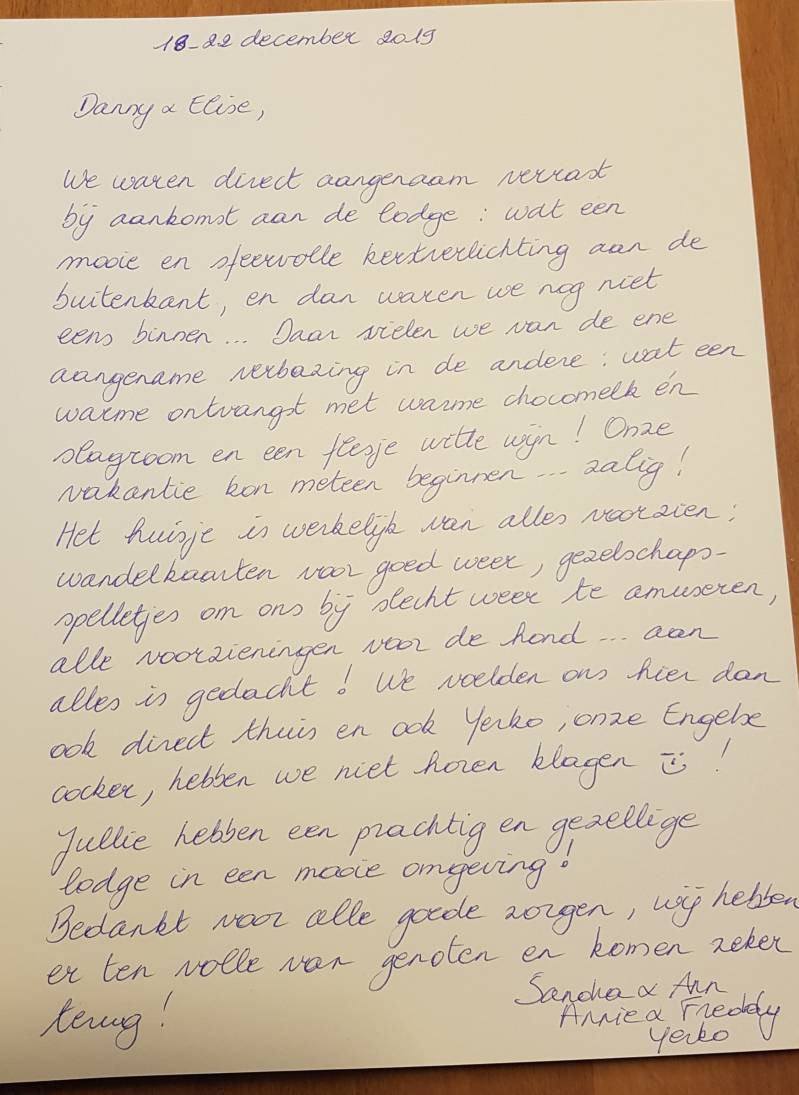 18-22 december 2019
Danny & Elise,
We waren direct aangenaam verrast
bij aankomst aan de lodge : wat een
mooie en sfeervolle kerstverlichting aan de
buitenkant, en dan waren we nog niet
eens binnen ... Daar vielen we van de ene
aangename verbazing in de andere : wat een
warme ontvangst met warme chocomelk én
slagroom en een flesje witte wijn ! Onze
vakantie kon meteen beginnen ... zalig !
Het huisje is werkelijk van alles voorzien :
wandelkaarten voor goed weer, gezelschaps-
spelletjes om ons bij slecht weer te amuseren,
alle voorzieningen voor de hond ... aan
alles is gedacht ! We voelden ons hier dan
ook direct thuis en ook Yerko, onze Engelse
cocker, hebben we niet horen klagen ☺ !
Jullie hebben een prachtig en gezellige
lodge in een mooie omgeving !
Bedankt voor alle goede zorgen, wij hebben
er ten volle van genoten en komen zeker
terug !
Sandra & Ann
Annie & Freddy
Yerko